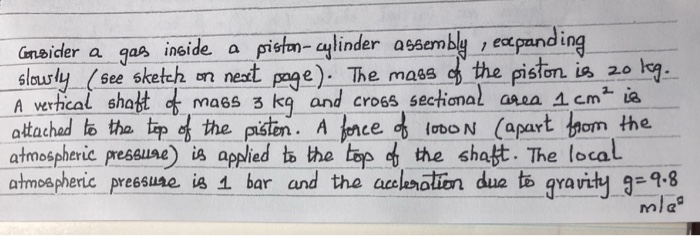 Consider a gas inside a piston-cylinder assembly, expanding
slowly (see sketch on next page). The mass of the piston is 20 kg.
A vertical shaft of mass 3 kg and cross sectional area 1 cm² is
attached to the top of the piston. A force of 1000 N (apart from the
atmospheric pressure) is applied to the top of the shaft. The local
atmospheric pressure is 1 bar and the acceleration due to gravity g=9.8
m/s²